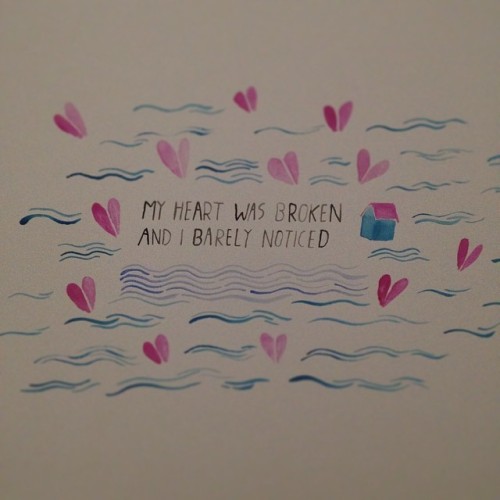 MY HEART WAS BROKEN
AND I BARELY NOTICED